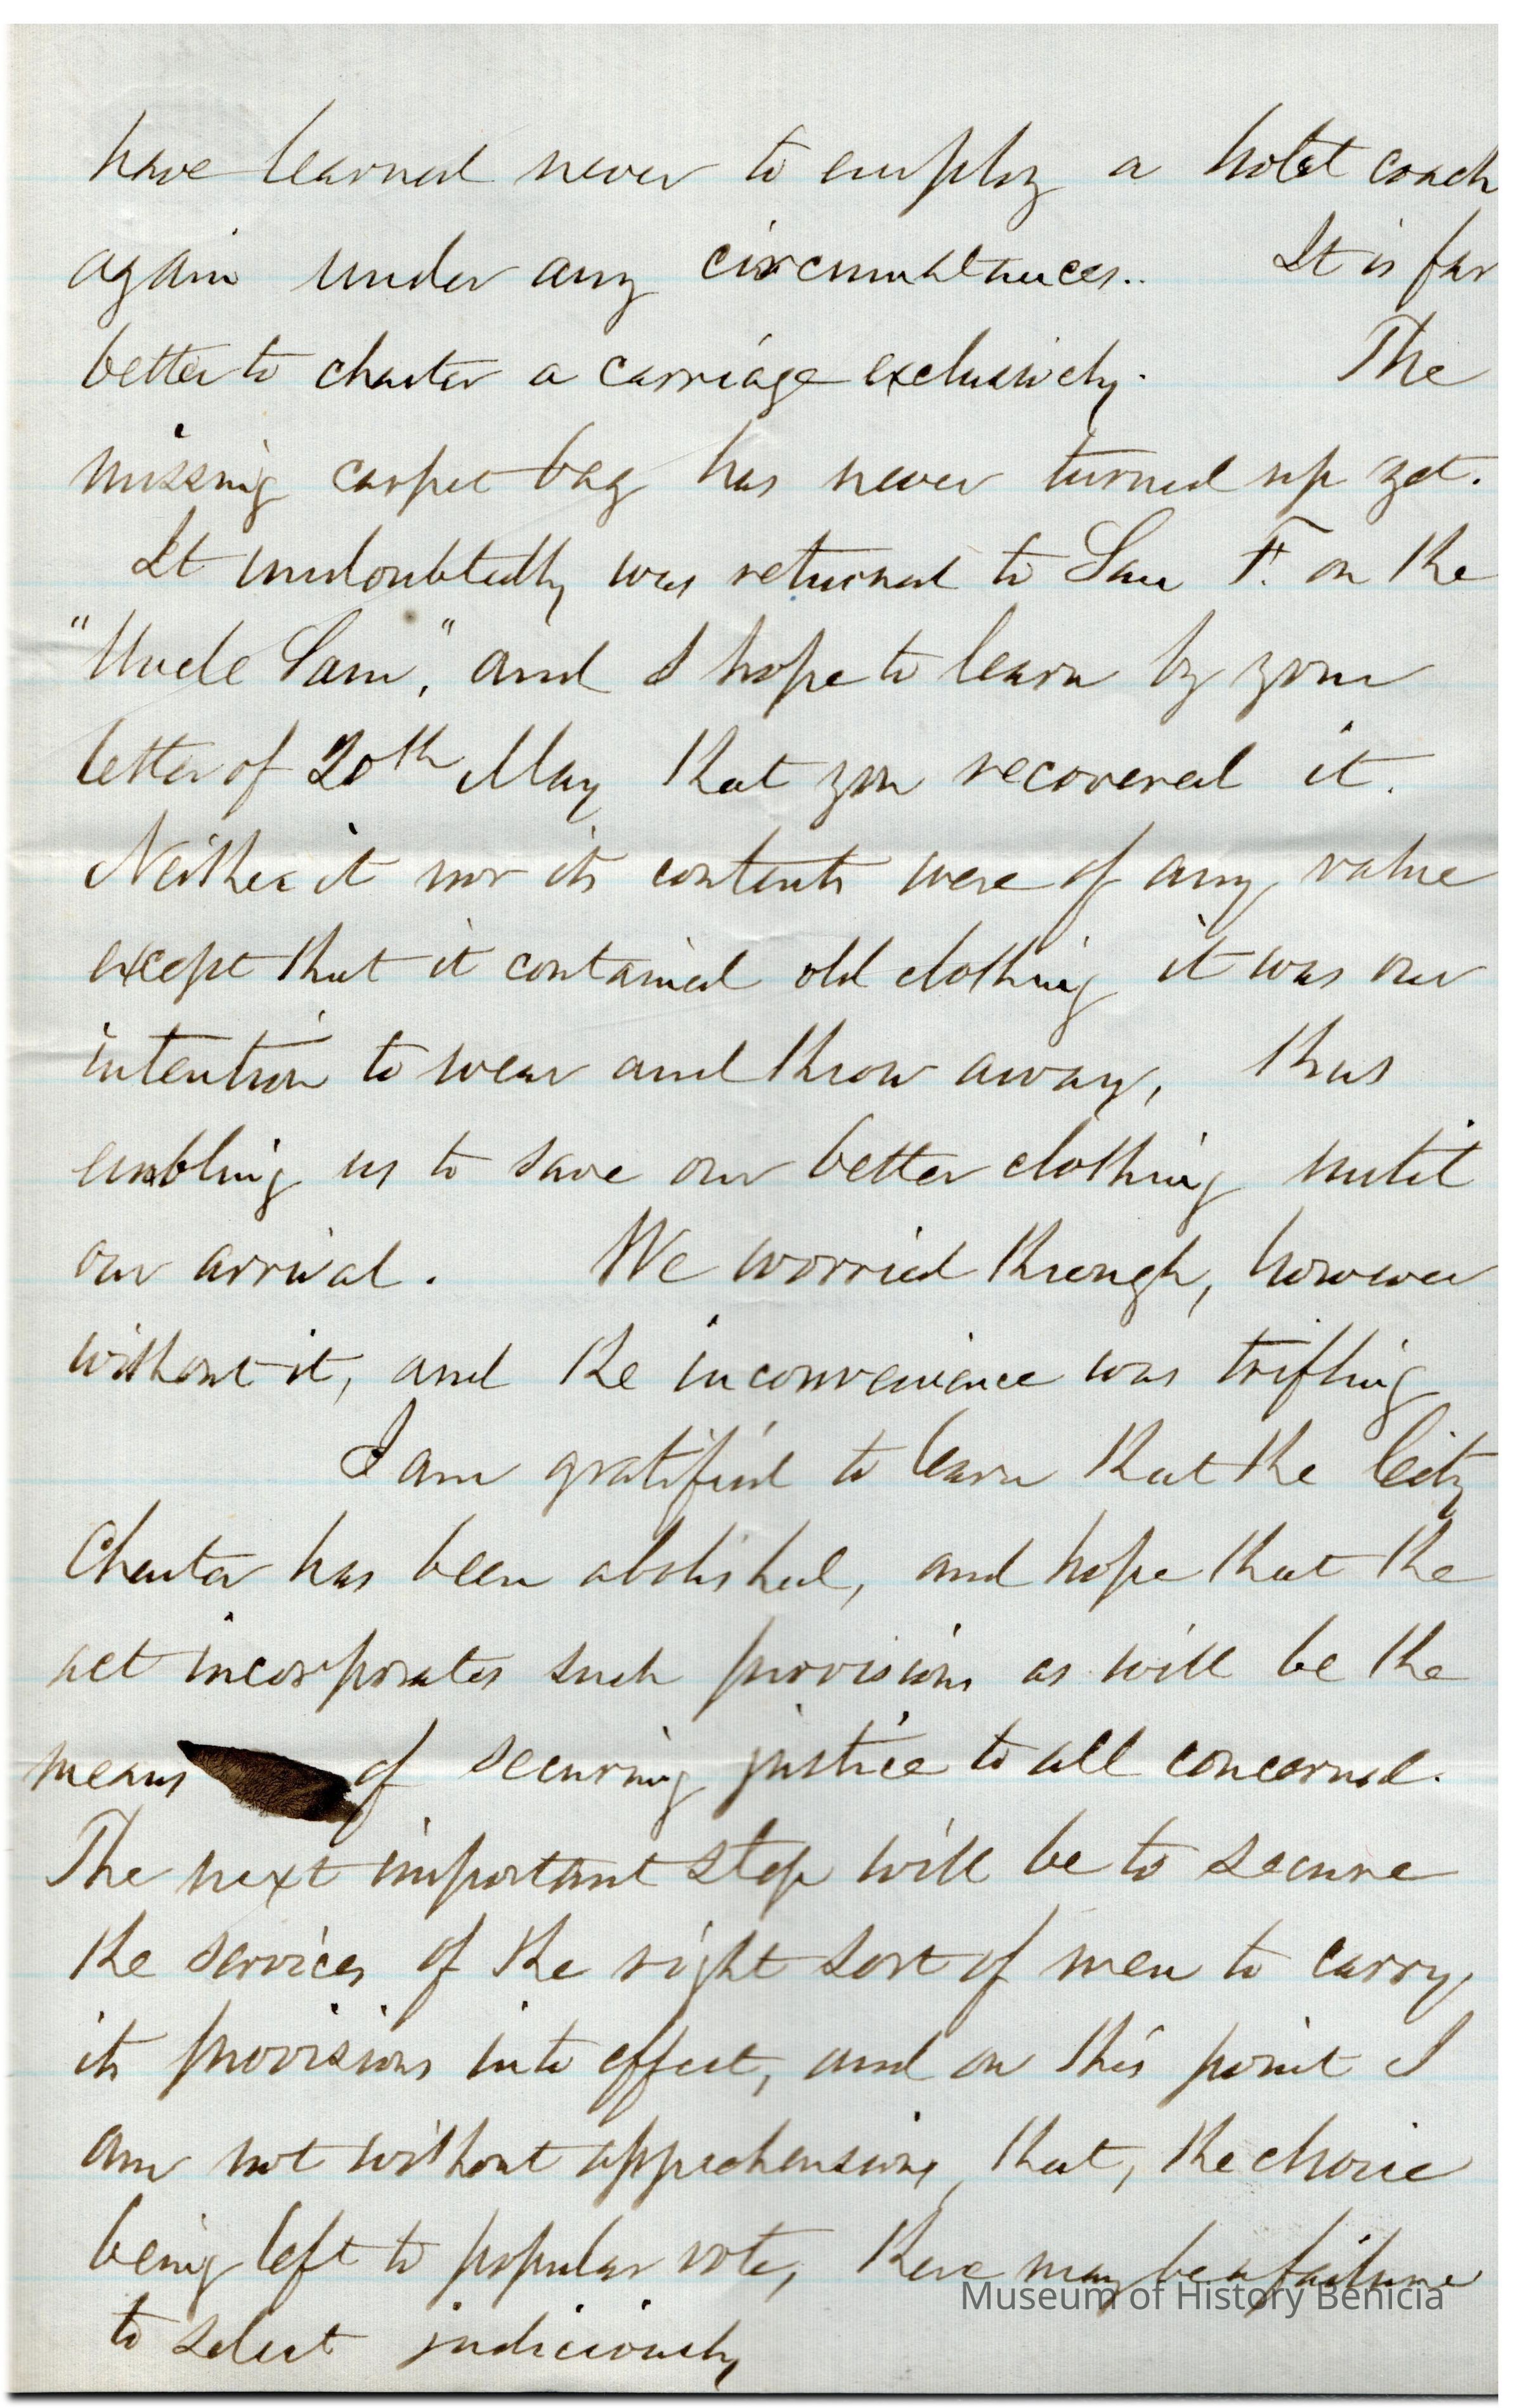 have learned never to employ a hotel coach
again under any circumstances.. It is far
better to charter a carriage exclusively. The
missing carpet bag has never turned up yet.
It undoubtedly was returned to San F. on the
"Uncle Sam," and I hope to learn by your
letter of 20th May that you recovered it.
Neither it nor its contents were of any value
except that it contained old clothing it was our
intention to wear and throw away, thus
enabling us to save our better clothing until
our arrival. We worried through, however
without it, and the inconvenience was trifling
I am gratified to learn that the City
Charter has been abolished, and hope that the
act incorporates such provisions as will be the
means of securing justice to all concerned.
The next important step will be to secure
the services of the right sort of men to carry
its provisions into effect, and on this point I
am not without apprehensions, that, the choice
being left to popular vote, there may be a failure
to select judiciously
Museum of History Benicia